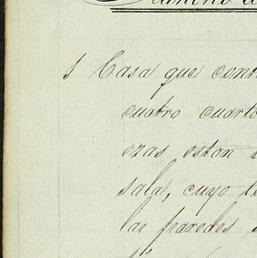 1 Casa que cont
cuatro cuarto
ezas estan
sala, cuyo te
las paredes